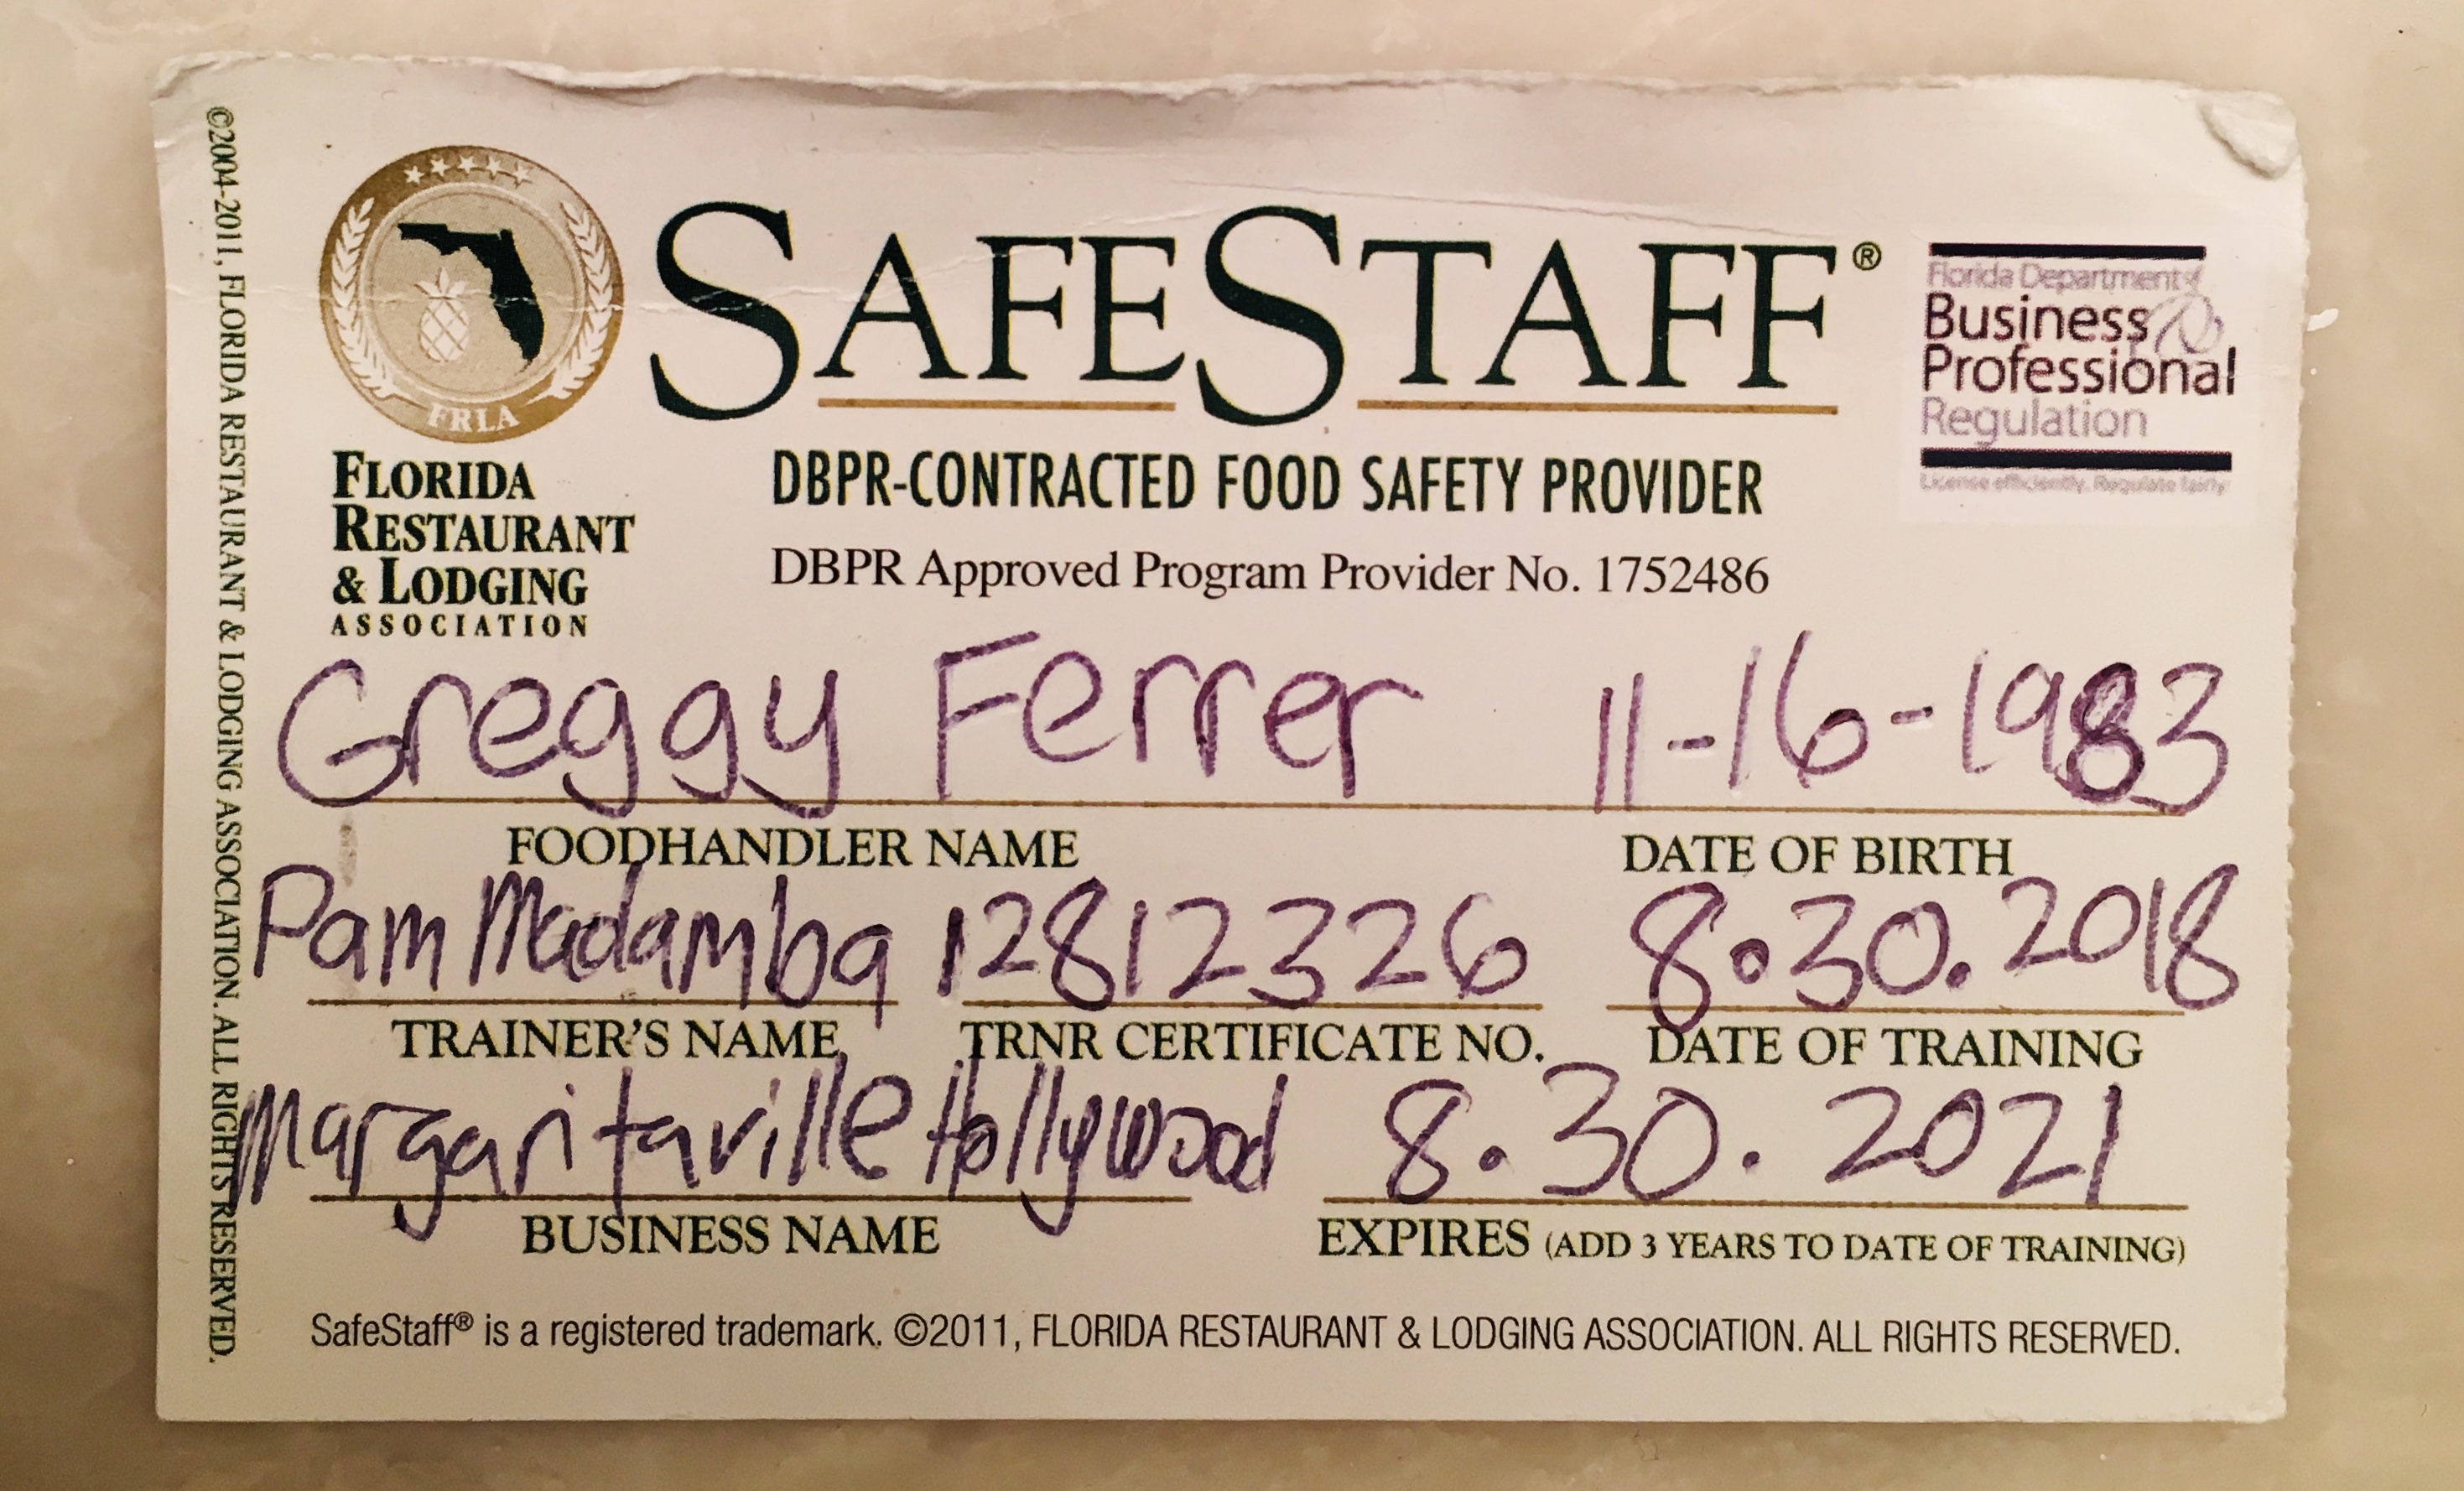 ©2004-2011, FLORIDA RESTAURANT & LODGING ASSOCIATION. ALL RIGHTS RESERVED.
FRLA
FLORIDA
RESTAURANT
& LODGING
ASSOCIATION
SAFESTAFF®
DBPR-CONTRACTED FOOD SAFETY PROVIDER
DBPR Approved Program Provider No. 1752486
Florida Department of
Business
Professional
Regulation
License efficiently. Regulate fairly.
Greggy Ferrer 11-16-1983
FOODHANDLER NAME DATE OF BIRTH
Pam Madamba 12812326 8.30.2018
TRAINER'S NAME TRNR CERTIFICATE NO. DATE OF TRAINING
Margaritaville Hollywood 8.30.2021
BUSINESS NAME EXPIRES (ADD 3 YEARS TO DATE OF TRAINING)
SafeStaff® is a registered trademark. ©2011, FLORIDA RESTAURANT & LODGING ASSOCIATION. ALL RIGHTS RESERVED.